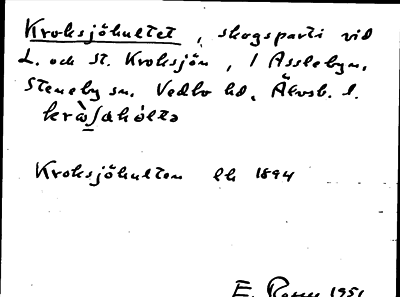 Kroksjöhultet, skogsparti vid
L. och St. Kroksjön, / Assleby n.
Steneby sn. Vedbo hd. Älvsb. l.
Kroksjöhulten lk 1894
E. 1951